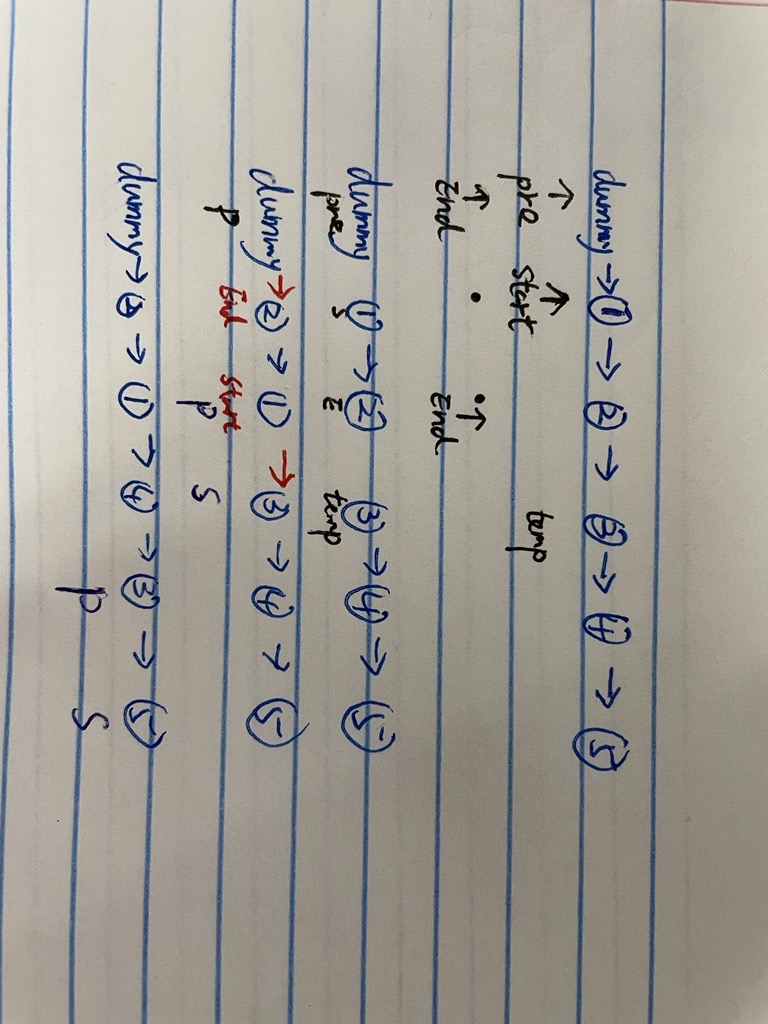 dummy → ① → ② → ③ → ④ → ⑤
↑ ↑
pre start temp
↑ • •↑
End End
dummy ① → ② ③ → ④ → ⑤
pre S E temp
dummy → ② → ① → ③ → ④ → ⑤
End start
P P S
dummy → ② → ① → ④ → ③ → ⑤
P S